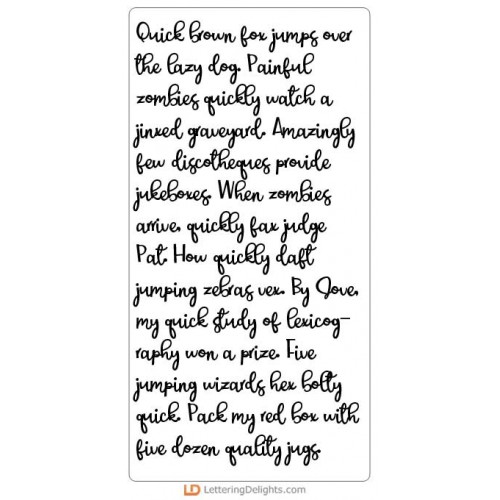 Quick brown fox jumps over
the lazy dog. Painful
zombies quickly watch a
jinxed graveyard. Amazingly
few discotheques provide
jukeboxes. When zombies
arrive, quickly fax judge
Pat. How quickly daft
jumping zebras vex. By Jove,
my quick study of lexicog-
raphy won a prize. Five
jumping wizards hex bolty
quick. Pack my red box with
five dozen quality jugs.
LD LetteringDelights.com